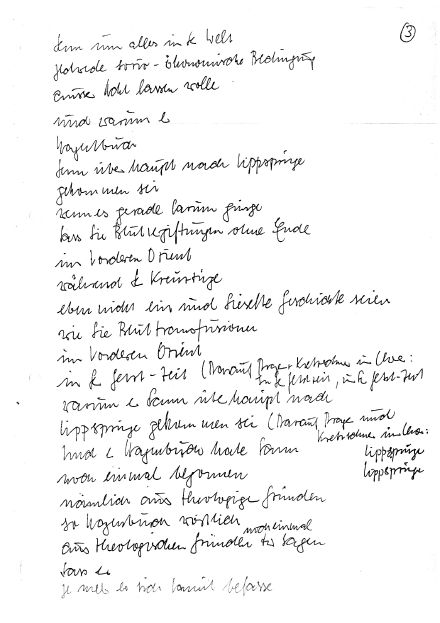 ③
denn um alles in d Welt
jedwede sozio-ökonomische Bedingung
ausser Acht lassen wolle
und warum e
Hagenbuch
denn überhaupt nach Lippspringe
gekommen sei
wenn es gerade darum ginge
dass die Blutvergiftungen ohne Ende
im Vorderen Orient
während d Kreuzzüge
eben nicht ein und dieselbe Geschichte seien
wie die Bluttransfusionen
im Vorderen Orient
in d Jetzt-Zeit (Darauf Proger + Krebsdame im Chor:
in d Jetztzeit, in d Jetzt-Zeit
warum e dann überhaupt nach
Lippspringe gekommen sei (Darauf Proge und
Krebsdame im Chor:
Lippspringe
Lippspringe
Und e Hagenbuch hate dann
noch einmal begonnen
nämlich aus theologige Gründen
so Hagenbuch wörtlich noch einmal
aus theologischen Gründen zu sagen
dass e
je mehr er sich damit befasse